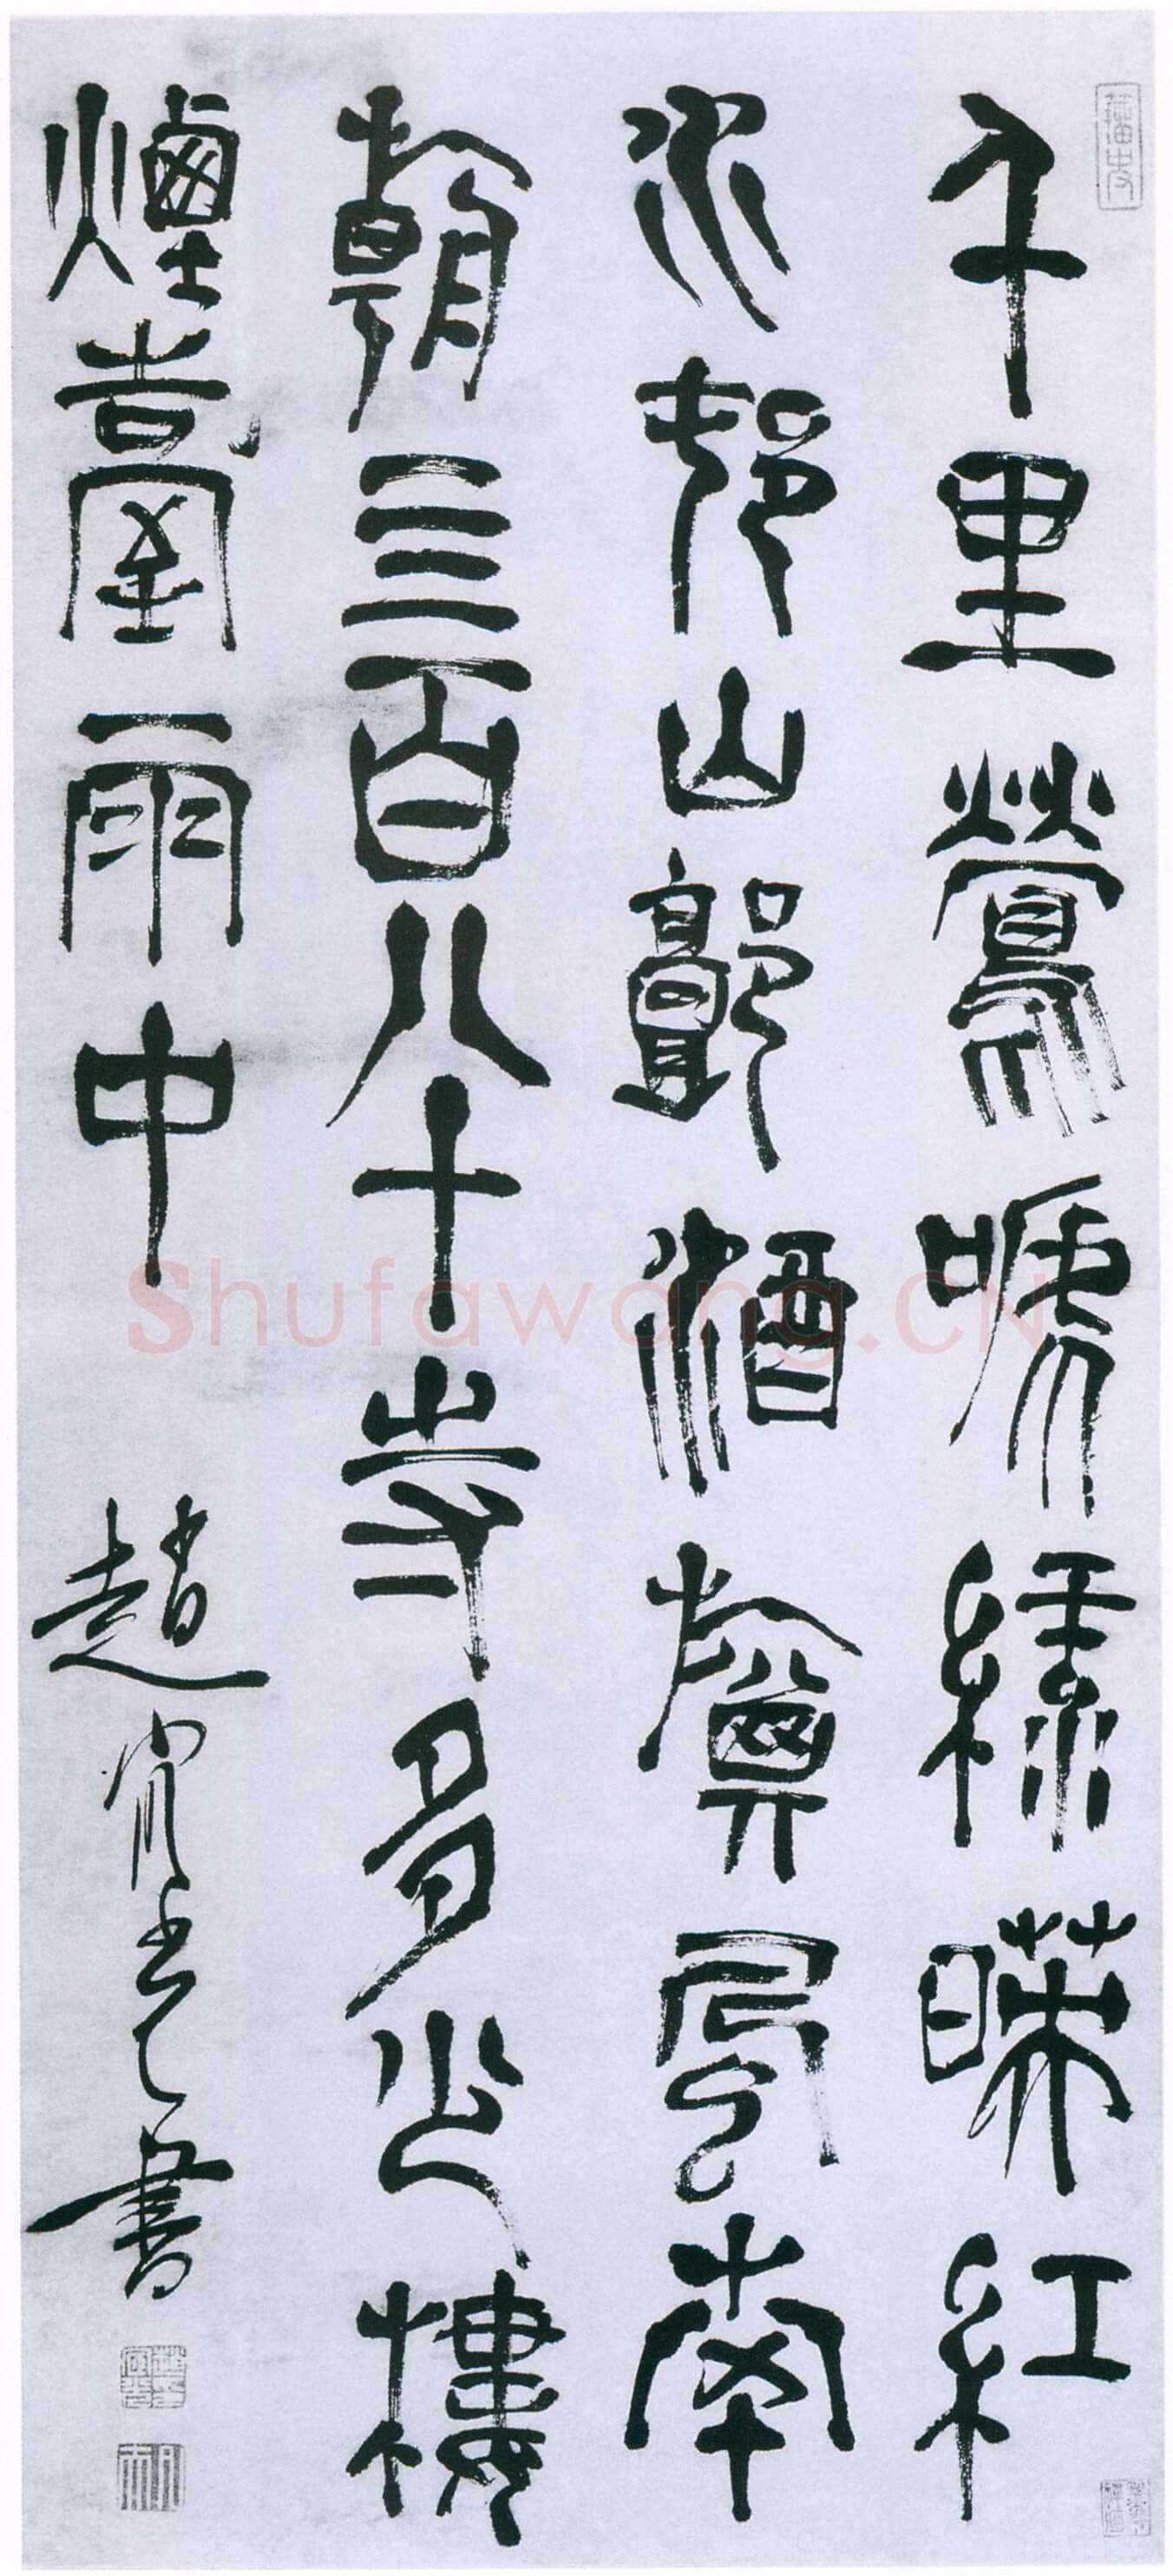 千里鶯嗁綠暎紅
水邨山郭酒旗風南
朝亖百八十寺多少樓
煙臺雨中
趙宧光書
Shufawang.CN